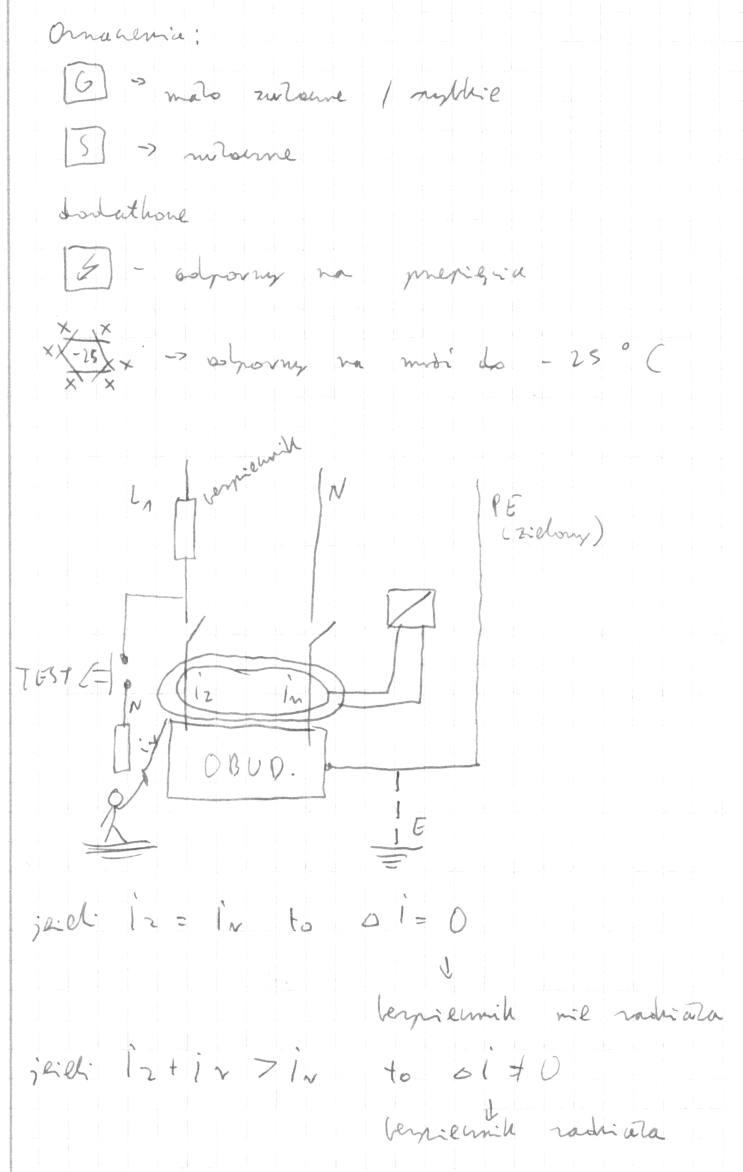 Oznaczenia:
G -> mało zwłoczne / szybkie
S -> zwłoczne
dodatkowe
- odporny na przepięcia
-25 -> odporny na mróz do -25°C
bezpiecznik
L1
N
PE
(zielony)
TEST
i2
iN
N
i
OBUD.
E
jeżeli i2 = iN to △i = 0
↓
bezpiecznik nie zadziała
jeżeli i2 + iN > iN to △i ≠ 0
↓
bezpiecznik zadziała